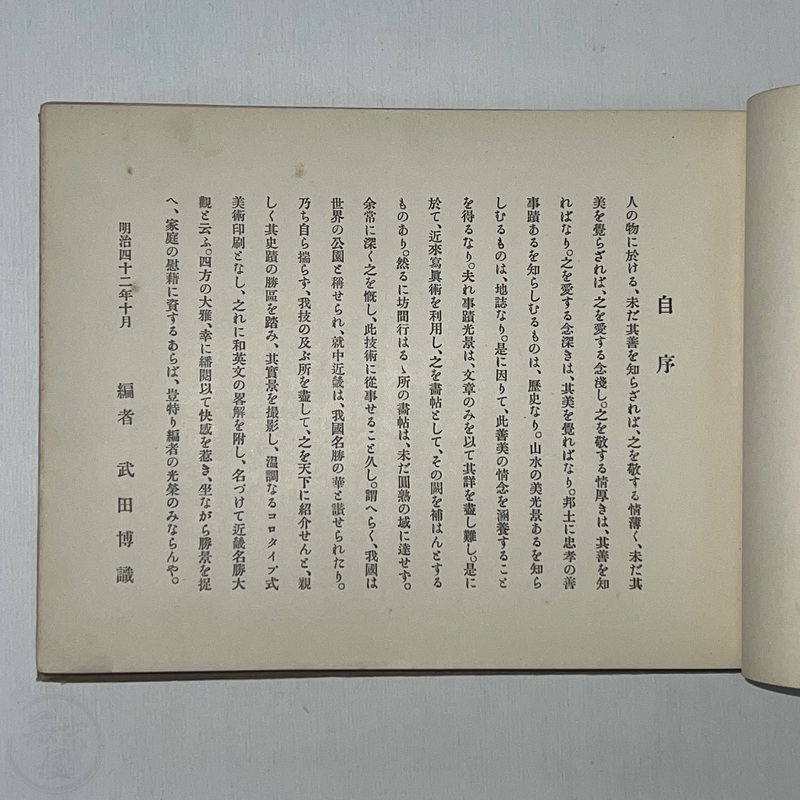 自序
人の物に於ける、未だ其善を知らざれば、之を敬する情薄く、未だ其
美を覺らざれば、之を愛する念淺し。之を敬する情厚きは、其善を知
ればなり。之を愛する念深きは、其美を覺ればなり。邦土に忠孝の善
事蹟あるを知らしむるものは、歷史なり。山水の美光景あるを知ら
しむるものは、地誌なり。是に因りて、此善美の情念を涵養すること
を得るなり。夫れ事蹟光景は、文章のみを以て其詳を盡し難し。是に
於て、近來寫眞術を利用し、之を畵帖として、その闕を補はんとする
ものあり。然るに坊間行はるゝ所の畵帖は、未だ圓熟の域に達せず。
余常に深く之を慨し、此技術に從事せること久し。謂へらく、我國は
世界の公園と稱せられ、就中近畿は、我國名勝の華と讃せられたり。
乃ち自ら揣らず、我技の及ぶ所を盡して、之を天下に紹介せんと、親
しく其史蹟の勝區を踏み、其實景を撮影し、温調なるコロタイプ式
美術印刷となし、之れに和英文の畧解を附し、名づけて近畿名勝大
觀と云ふ。四方の大雅、幸に繙閱以て快感を惹き、坐ながら勝景を捉
へ、家庭の慰藉に資するあらば、豈特り編者の光榮のみならんや。
明治四十二年十月
編者 武田博識